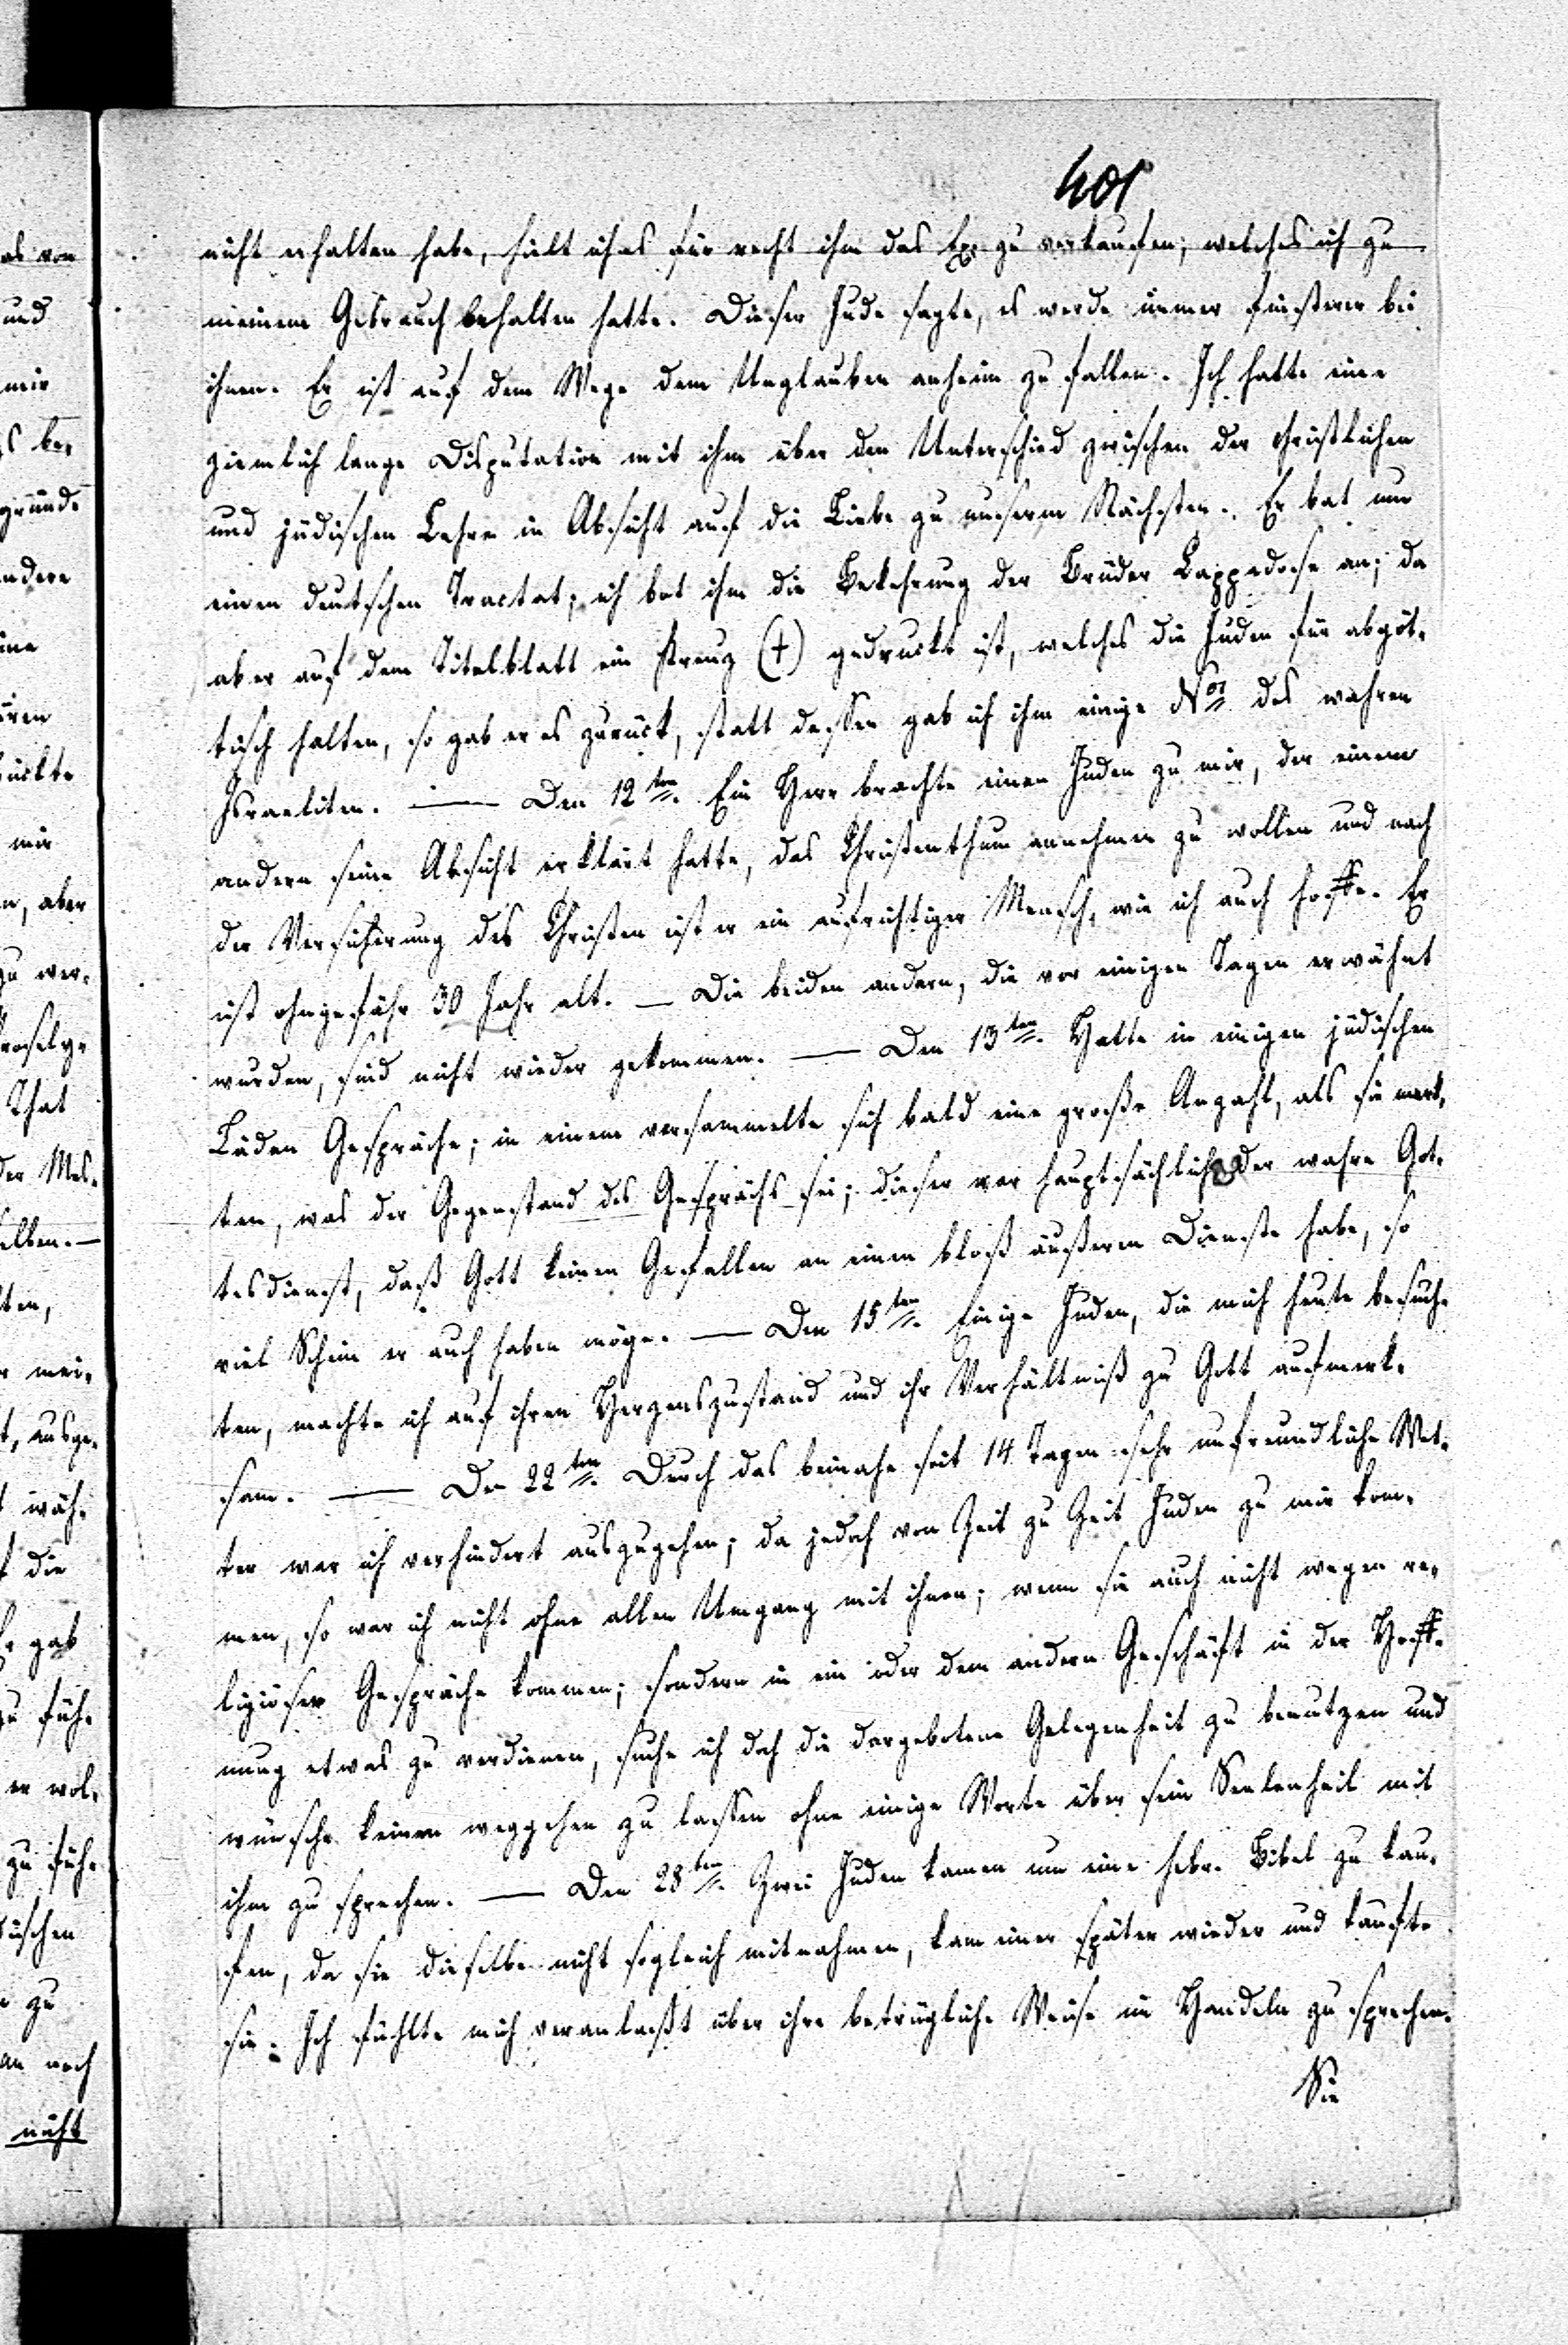 401
nicht erhalten habe, hielt ich es für recht ihm das Ex. zu verkaufen, welches ich zu
meinem Gebrauch behalten hatte. Dieser Jude sagte, es werde immer finsterer bei
ihnen. Er ist auf dem Wege dem Unglauben anheim zu fallen. Ich hatte eine
ziemlich lange Disputation mit ihm über den Unterschied zwischen der christlichen
und jüdischen Lehre in Absicht auf die Liebe zu unserm Nächsten. Er bat um
einen deutschen Tractat; ich bot ihm die Bekehrung der Brüder Cappadose an; da
aber auf dem Titelblatt ein Kreuz (†) gedruckt ist, welches die Juden für abgöt-
tisch halten, so gab er es zurück, statt dessen gab ich ihm einige Nos des wahren
Israeliten. — Den 12ten. Ein Herr brachte einen Juden zu mir, der einem
andern seine Absicht erklärt hatte, das Christenthum annehmen zu wollen und nach
der Versicherung des Christen ist er ein aufrichtiger Mensch, wie ich auch hoffe. Er
ist ohngefähr 30 Jahr alt. — Die beiden andern, die vor einigen Tagen erwähnt
wurden, sind nicht wieder gekommen. — Den 13ten. Hatte in einigen jüdischen
Läden Gespräche; in einem versammelte sich bald eine große Anzahl, als sie merk-
ten, was der Gegenstand des Gesprächs sei; dieser war hauptsächlich der wahre Got-
tesdienst, daß Gott keinen Gefallen an einem bloß äußeren Dienste habe, so
viel Schein er auch haben möge. — Den 15ten. Einige Juden, die mich heute besuch-
ten, machte ich auf ihren Herzenszustand und ihr Verhältniß zu Gott aufmerk-
sam. — Den 22ten. Durch das beinahe seit 14 Tagen sehr unfreundliche Wet-
ter war ich verhindert auszugehen; da jedoch von Zeit zu Zeit Juden zu mir kom-
men, so war ich nicht ohne allen Umgang mit ihnen; wenn sie auch nicht wegen re-
ligiöser Gespräche kommen; sondern in ein oder dem andern Geschäft in der Hoff-
nung etwas zu verdienen, suche ich doch die dargebotene Gelegenheit zu benutzen und
wünsche keinen weggehen zu lassen ohne einige Worte über sein Seelenheil mit
ihm zu sprechen. — Den 28ten. Zwei Juden kamen um eine hebr. Bibel zu kau-
fen, da sie dieselbe nicht sogleich mitnahmen, kam einer später wieder und kaufte
sie. Ich fühlte mich veranlaßt über ihre betrügliche Weise im Handeln zu sprechen.
Sie